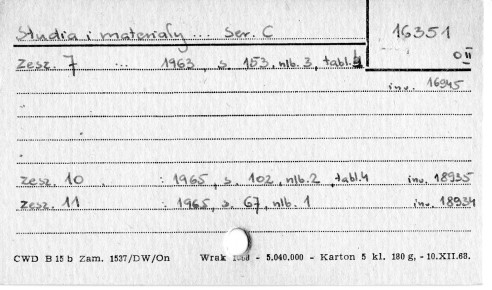 Studia i materiały ... Ser. C
16351
0 II
Zesz. 7 ... 1963, s. 153, nlb. 3, tabl. 4
inw. 16945
Zesz. 10 : 1965, s. 102, nlb. 2, tabl. 4 inw. 18935
Zesz. 11 : 1965, s. 67, nlb. 1 inw. 18934
CWD B 15 b Zam. 1537/DW/On Wrak - 5.040,000 - Karton 5 kl. 180 g, - 10.XII.68.